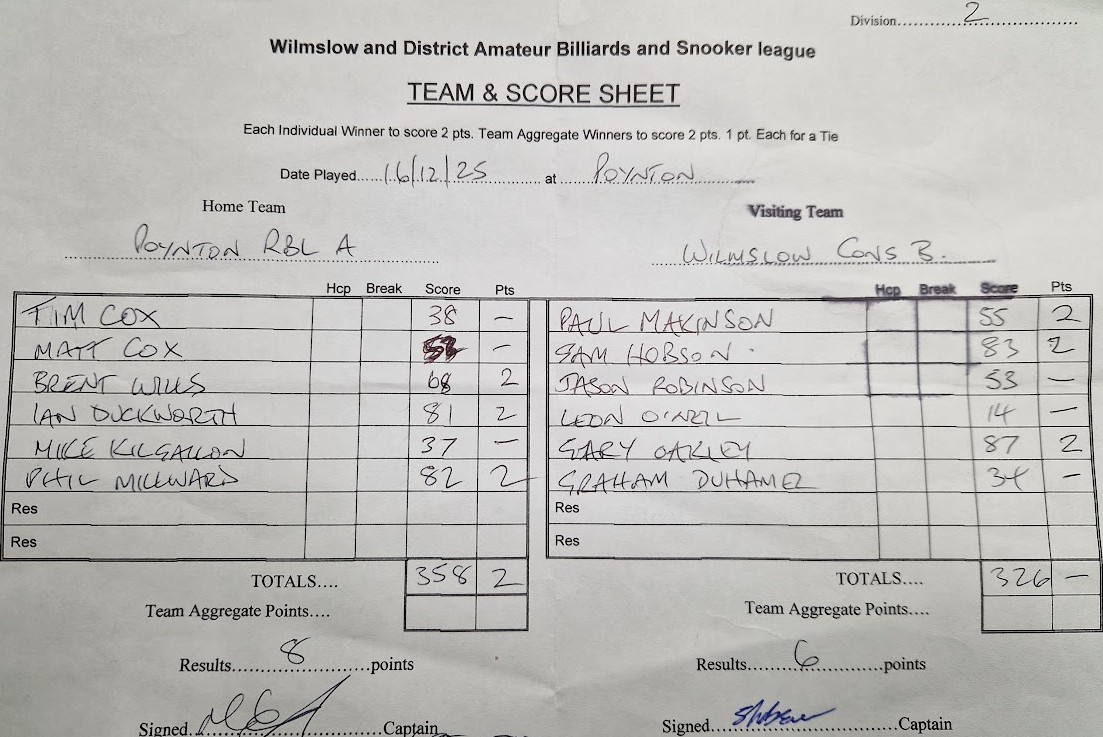 Division 2
Wilmslow and District Amateur Billiards and Snooker league
TEAM & SCORE SHEET
Each Individual Winner to score 2 pts. Team Aggregate Winners to score 2 pts. 1 pt. Each for a Tie
Date Played 16/12/25 at POYNTON
Home Team Visiting Team
POYNTON RBL A WILMSLOW CONS B.
Hcp Break Score Pts Hcp Break Score Pts
TIM COX 38 — PAUL MAKINSON 55 2
MATT COX — SAM HOBSON 83 2
BRENT WILLS 68 2 JASON ROBINSON 53 —
IAN DUCKWORTH 81 2 LEON O'NEIL 14 —
MIKE KILGALLON 37 — GARY OAKLEY 87 2
PHIL MILLWARD 82 2 GRAHAM DUHAMEL 34 —
Res Res
Res Res
TOTALS.... 358 2 TOTALS.... 326 —
Team Aggregate Points.... Team Aggregate Points....
Results 8 points Results 6 points
Signed Captain Signed Captain